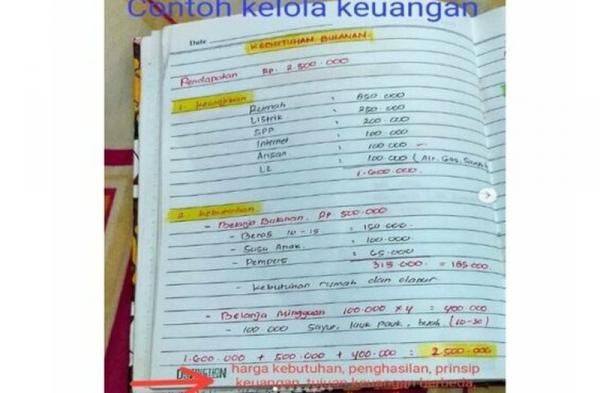 Contoh kelola keuangan
Date
KEBUTUHAN BULANAN
Pendapatan Rp. 2.500.000
1. Kewajiban
Rumah : 850.000
Listrik : 250.000
SPP : 200.000
Internet : 100.000
Arisan : 100.000 -
LL : 100.000 (Air, Gas, Sampah
1.600.000
2. Kebutuhan
- Belanja Bulanan. Rp 500.000
- Beras 10-15 = 150.000
- Susu Anak : 100.000
- Pempers : 65.000
315.000 = 185.000
- kebutuhan rumah dan dapur
- Belanja Mingguan 100.000 x 4 = 400.000
- 100.000 sayur, lauk pauk, buah (10-30)
1.600.000 + 500.000 + 400.000 = 2.500.000
harga kebutuhan, penghasilan, prinsip
keuangan, tujuan keuangan berbeda